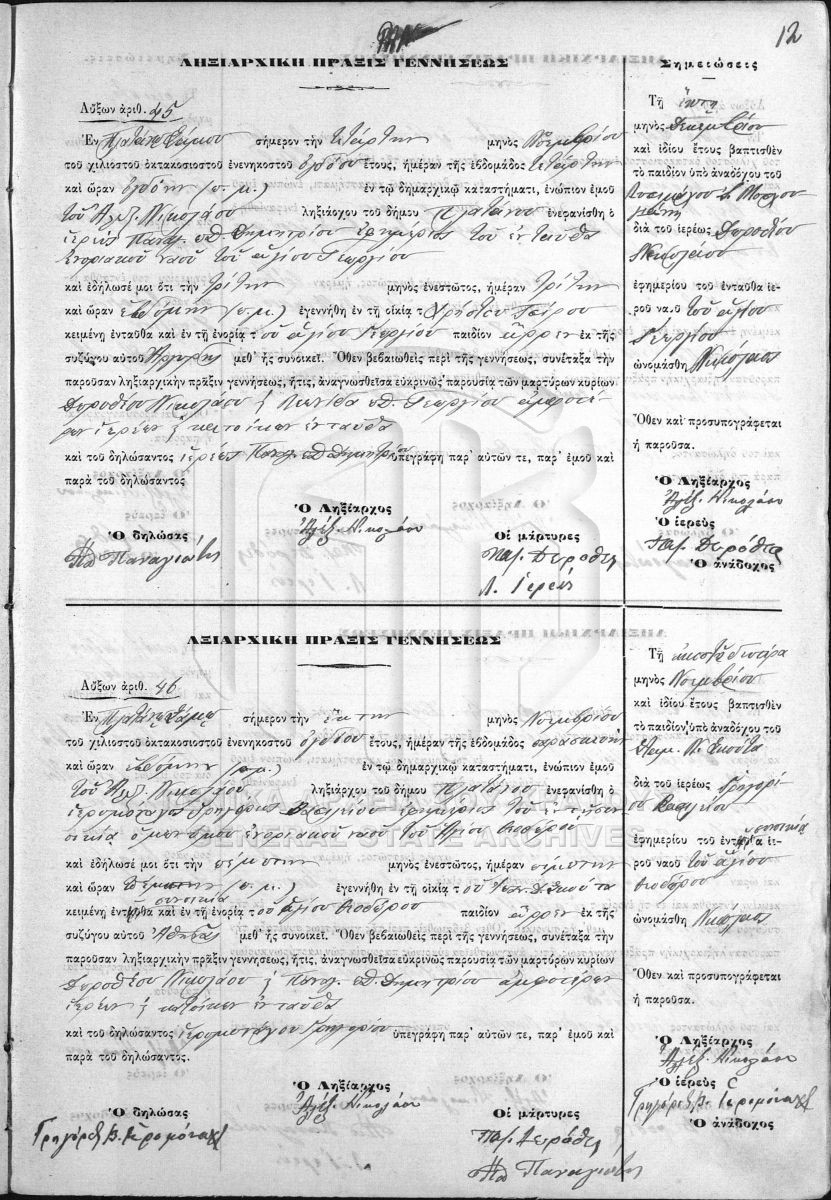 12
ΛΗΞΙΑΡΧΙΚΗ ΠΡΑΞΙΣ ΓΕΝΝΗΣΕΩΣ
Αὔξων ἀριθ. 45
Ἐν Πλατάνῳ Σάμου σήμερον τὴν τετάρτην μηνὸς Νοεμβρίου
τοῦ χιλιοστοῦ ὀκτακοσιοστοῦ ἐνενηκοστοῦ ὀγδόου ἔτους, ἡμέραν τῆς ἑβδομάδος τετάρτην
καὶ ὥραν ὀγδόην (π.μ.) ἐν τῷ δημαρχικῷ καταστήματι, ἐνώπιον ἐμοῦ
τοῦ Ἀλεξ. Νικολάου ληξιάρχου τοῦ δήμου Πλατάνου ἐνεφανίσθη ὁ
ἱερεὺς Παναγ. Δημητρίου ἐφημέριος τοῦ ἐνταῦθα
ἐνοριακοῦ ναοῦ τοῦ ἁγίου Γεωργίου
καὶ ἐδήλωσέ μοι ὅτι τὴν τρίτην μηνὸς ἐνεστῶτος, ἡμέραν τρίτην
καὶ ὥραν ἑβδόμην (π.μ.) ἐγεννήθη ἐν τῇ οἰκίᾳ τ Χρήστου
κειμένῃ ἐνταῦθα καὶ ἐν τῇ ἐνορίᾳ τοῦ ἁγίου Γεωργίου παιδίον ἄρρεν ἐκ τῆς
συζύγου αὐτοῦ Ἀργυρῆς μεθ' ἧς συνοικεῖ. Ὅθεν βεβαιωθεὶς περὶ τῆς γεννήσεως, συνέταξα τὴν
παροῦσαν ληξιαρχικὴν πρᾶξιν γεννήσεως, ἥτις, ἀναγνωσθεῖσα εὐκρινῶς παρουσίᾳ τῶν μαρτύρων κυρίων
Δωροθέου Νικολάου ἢ Λεωνίδα Γεωργίου ἀμφοτέ-
ρων ἱερέων ἢ κατοίκων ἐνταῦθα
καὶ τοῦ δηλώσαντος ἱερέως Παναγ. Δημητρίου ὑπεγράφη παρ' αὐτῶν τε, παρ' ἐμοῦ καὶ
παρὰ τοῦ δηλώσαντος
Ὁ Ληξίαρχος
Ἀλέξ. Νικολάου
Ὁ δηλώσας
Παναγιώτης
Οἱ μάρτυρες
Παπ. Δωρόθεος
Λ. Ἱερεύς
Σημειώσεις
Τῇ
μηνὸς Δεκεμβρίου
καὶ ἰδίου ἔτους βαπτισθὲν
τὸ παιδίον ὑπὸ ἀναδόχου τοῦ
διὰ τοῦ ἱερέως Δωροθέου
Νικολάου
ἐφημερίου τοῦ ἐνταῦθα ἱε-
ροῦ ναοῦ τοῦ ἁγίου
Γεωργίου
ὠνομάσθη Νικόλαος
Ὅθεν καὶ προσυπογράφεται
ἡ παροῦσα.
Ὁ Ληξίαρχος
Ἀλέξ. Νικολάου
Ὁ ἱερεὺς
Παπ. Δωρόθεος
Ὁ ἀνάδοχος
ΛΞΙΑΡΧΙΚΗ ΠΡΑΞΙΣ ΓΕΝΝΗΣΕΩΣ
Αὔξων ἀριθ. 46
Ἐν Πλατάνῳ Σάμου σήμερον τὴν ἕκτην μηνὸς Νοεμβρίου
τοῦ χιλιοστοῦ ὀκτακοσιοστοῦ ἐνενηκοστοῦ ὀγδόου ἔτους, ἡμέραν τῆς ἑβδομάδος παρασκευὴν
καὶ ὥραν ἑβδόμην (π.μ.) ἐν τῷ δημαρχικῷ καταστήματι, ἐνώπιον ἐμοῦ
τοῦ Ἀλεξ. Νικολάου ληξιάρχου τοῦ δήμου Πλατάνου ἐνεφανίσθη ὁ
ἱερομόναχος Γρηγόριος Βασιλείου ἐφημέριος τοῦ ἐν τῇ συν-
οικίᾳ ἐνοριακοῦ ναοῦ τοῦ Ἁγίου Θεοδώρου
καὶ ἐδήλωσέ μοι ὅτι τὴν πέμπτην μηνὸς ἐνεστῶτος, ἡμέραν πέμπτην
καὶ ὥραν πέμπτην (π.μ.) ἐγεννήθη ἐν τῇ οἰκίᾳ τοῦ
συνοικίᾳ
κειμένῃ ἐνταῦθα καὶ ἐν τῇ ἐνορίᾳ τοῦ ἁγίου Θεοδώρου παιδίον ἄρρεν ἐκ τῆς
συζύγου αὐτοῦ Ἀθηνᾶς μεθ' ἧς συνοικεῖ. Ὅθεν βεβαιωθεὶς περὶ τῆς γεννήσεως, συνέταξα τὴν
παροῦσαν ληξιαρχικὴν πρᾶξιν γεννήσεως, ἥτις, ἀναγνωσθεῖσα εὐκρινῶς παρουσίᾳ τῶν μαρτύρων κυρίων
Δωροθέου Νικολάου ἢ Παναγ. Δημητρίου ἀμφοτέρων
ἱερέων ἢ κατοίκων ἐνταῦθα
καὶ τοῦ δηλώσαντος ἱερομονάχου Γρηγορίου ὑπεγράφη παρ' αὐτῶν τε, παρ' ἐμοῦ καὶ
παρὰ τοῦ δηλώσαντος.
Ὁ Ληξίαρχος
Ἀλέξ. Νικολάου
Ὁ δηλώσας
Γρηγόριος Β. Ἱερομόναχος
Οἱ μάρτυρες
Παπ. Δωρόθεος
Παναγιώτης
Τῇ εἰκοστῇ δευτέρᾳ
μηνὸς Νοεμβρίου
καὶ ἰδίου ἔτους βαπτισθὲν
τὸ παιδίον, ὑπὸ ἀναδόχου τοῦ
διὰ τοῦ ἱερέως Γρηγορί-
ου Βασιλείου
συνοικίᾳ
ἐφημερίου τοῦ ἐνταῦθα ἱε-
ροῦ ναοῦ τοῦ ἁγίου
Θεοδώρου
ὠνομάσθη Νικόλαος
Ὅθεν καὶ προσυπογράφεται
ἡ παροῦσα.
Ὁ Ληξίαρχος
Ἀλέξ. Νικολάου
Ὁ ἱερεὺς
Γρηγόριος Β. Ἱερομόναχος
Ὁ ἀνάδοχος
GENERAL STATE ARCHIVES